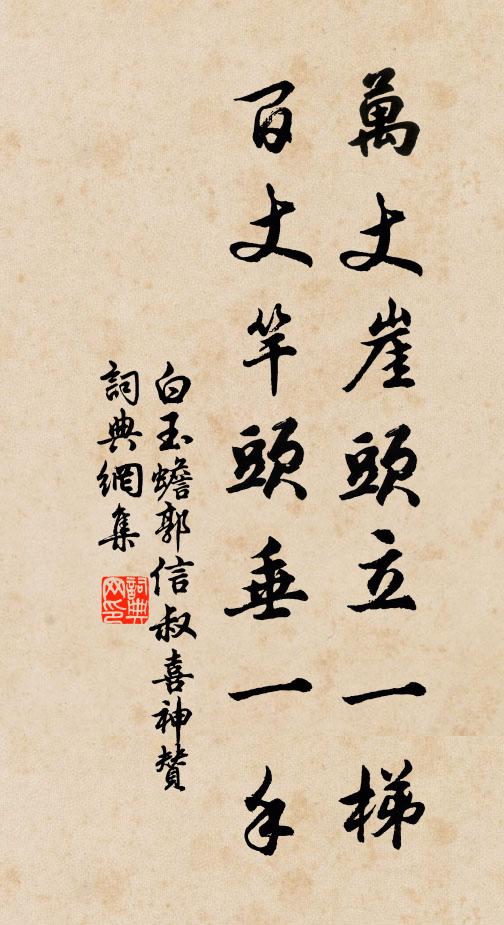 萬丈崖頭立一梯
百丈竿頭垂一手
白玉蟾郭信叔喜神贊
詞典網集
詞典網印